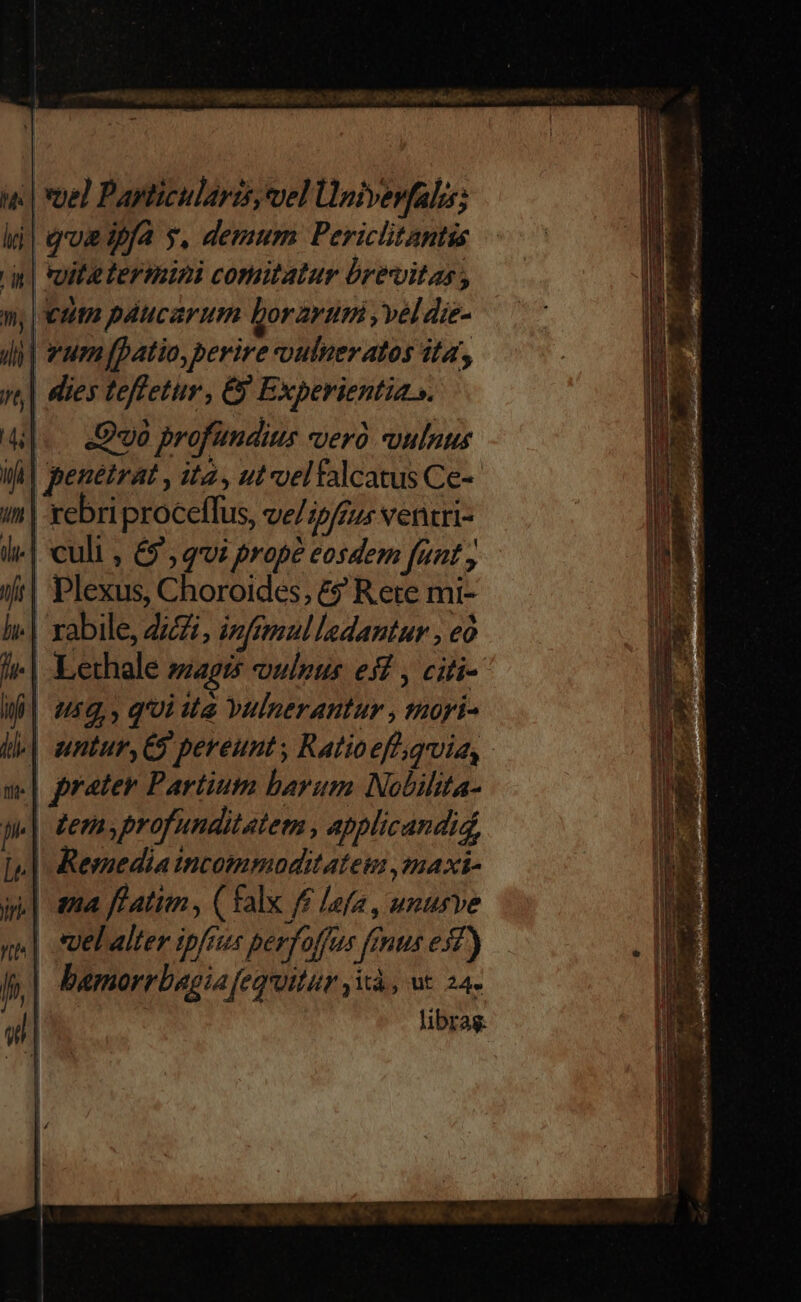 vel Particularis, vel Universalis;
qvæ ipsa s. demum Periclitantis
vitæ termini comitatur brevitas,
cùm paucarum horarum, vel die-
rum spatio, perire vulneratos ita,
dies testetur, & Experientia.
Qvò profundius verò vulnus
penetrat, ità, ut vel falcatus Ce-
rebri processus, vel ipsius ventri-
culi, &, qvi propè eosdem sunt,
Plexus, Choroides, & Rete mi-
rabile, dicti, insimul lædantur, eò
Lethale magis vulnus est, citi-
usq;, qvi ità vulnerantur, mori-
untur, & pereunt; Ratio est, qvia,
præter Partium harum Nobilita-
tem, profunditatem, applicandiq;
Remedia incommoditatem, maxi-
ma statim, (falx si læsa, unusve
vel alter ipsius perfossus sinus est)
hæmorrhagia seqvitur, ità, ut 24.
libras